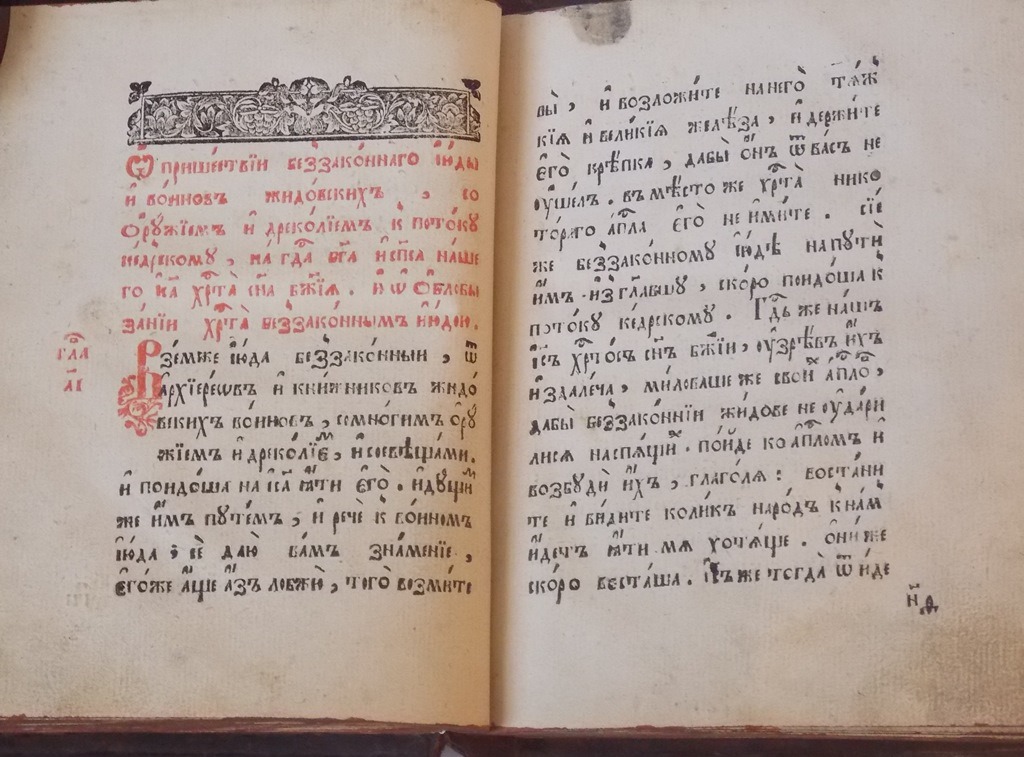 Ѡ҆ прише́ствїи беззако́ннаго і҆ю́ды
и҆ во́инѡвъ жидо́вскихъ , со
Ѻ҆рꙋ́жїемъ и҆ дреко́лїемъ к пото́кꙋ
ке́дрскомꙋ , на гд҇а бг҃а и҆ сп҃са на́ше
го і҆са хр҇та̀ сн҃а бж҃їѧ . и҆ ѡ҆ ѡ҆блобы
за́нїи хр҇та̀ беззако́ннымъ і҆ю́дою .
гла
аі
Взе́мже і҆ю́да беззако́нныи , ѿ
а҆рхїере́ѡвъ и҆ кни́жникѡвъ жидо́
вскихъ во́инѡвъ , сомно́гимъ ѻ҆рꙋ́
жїемъ и҆ дреко́лїемъ , и҆ сосвѣща́ми .
и҆ поидо́ша на і҆са ꙗ҆́ти є҆го̀ . и҆дꙋ́щим
же и҆̀мъ пꙋте́мъ , и҆ речѐ к во́иномъ
і҆ю́да ; сѐ даю̀ ва́мъ зна́менїе ,
є҆го́же а҆́ще а҆́зъ лобжꙋ̀ , того̀ возми́те
вы̀ , и҆ возложи́те нанего̀ тѧ́ж
кїѧ и҆ вели́кїѧ желѣ́за , и҆ держи́те
є҆го̀ крѣ́пка , дабы̀ ѻ҆́нъ ѿ ва́съ не
ᲂу҆ше́лъ . въмѣ́сто же хр҇та̀ нико
то́раго а҆п҇ла є҆го̀ не и҆ми́те . сїѐ
же беззако́нномꙋ і҆ю́дѣ напꙋтѝ
и҆̀мъ изгла́вшꙋ , ско́ро поидо́ша к
пото́кꙋ ке́дрскомꙋ . Гд҇ь же на́шъ
і҆съ хр҇то́съ сн҃ъ бж҃їи , ᲂу҆зрѣ́въ и҆́хъ
и҆здале́ча , ми́ловаше же свои҆̀ а҆п҇ло ,
дабы̀ беззако́ннїи жи́дове не ᲂу҆да́ри
лисѧ наспѧ́щих . по́йде ко а҆п҇ломъ и҆
возбꙋдѝ и҆́хъ , глаго́лѧ : воста́ни
те и҆ ви́дите коли́къ наро́дъ к на́м
и҆де́тъ ꙗ҆́ти мѧ хотѧ́ще . ѻ҆ни́ же
ско́ро воста́ша . І҆съ же тогда̀ ѿи́де